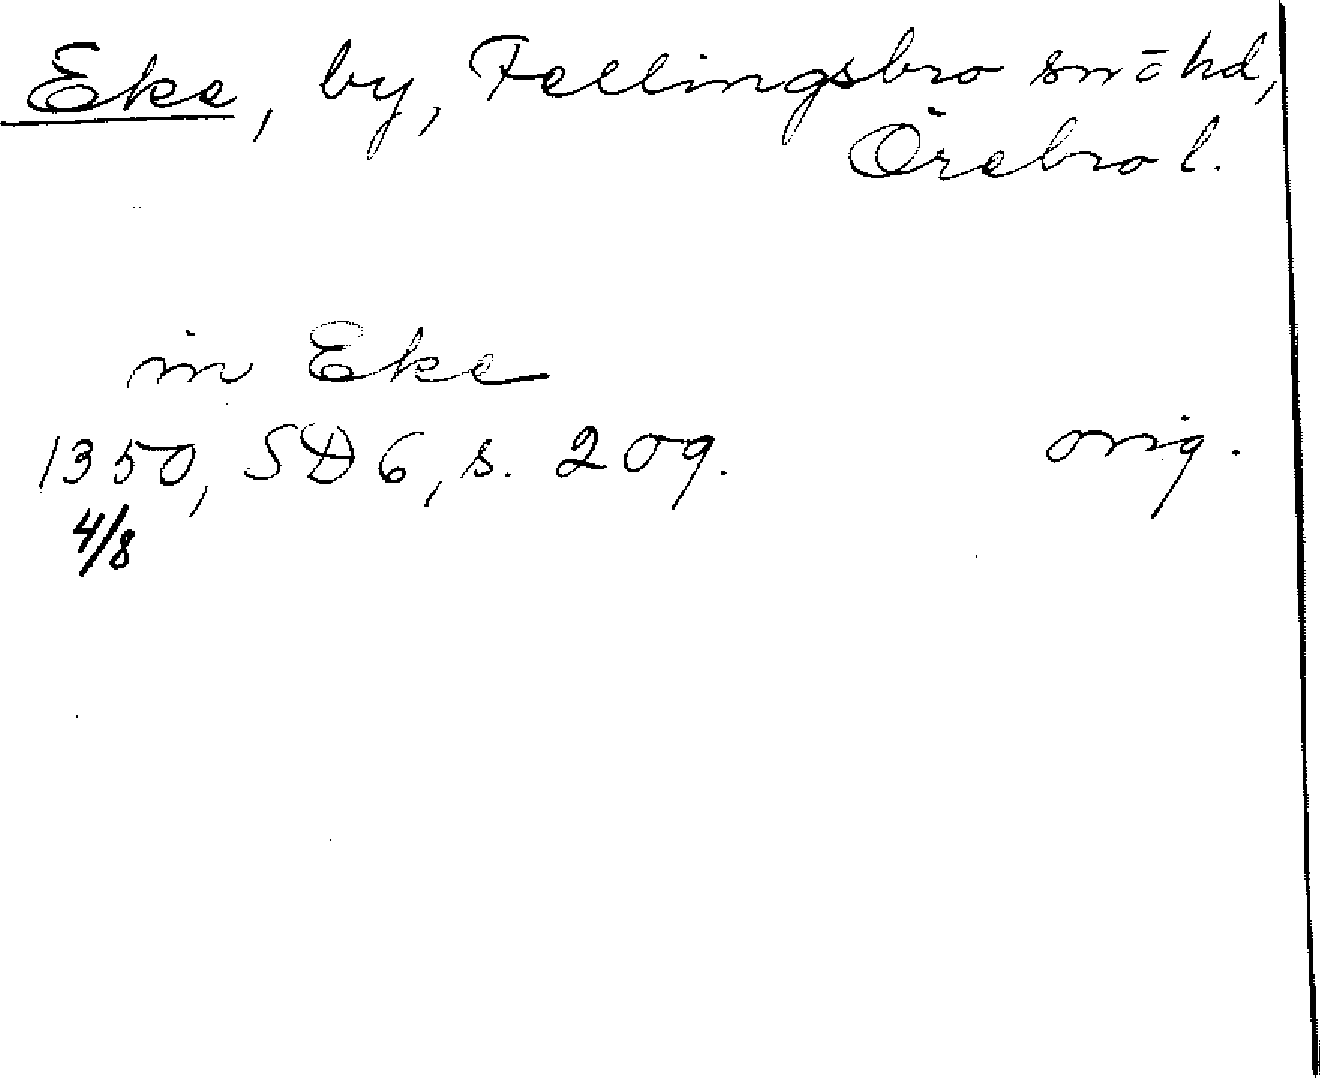 Eke, by, Fellingsbro sn o hd,
Örebro l.
in Eke
1350, SD 6, s. 209. orig.
4/8